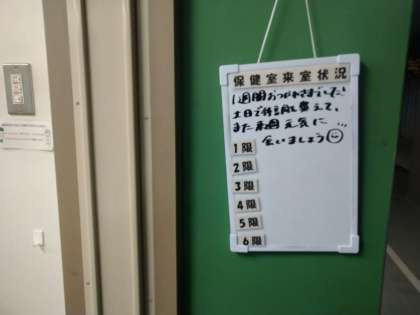 保健室来室状況
1週間おつかれさまでした!
土日で体調を整えて、
また来週元気に...
会いましょう
1限
2限
3限
4限
5限
6限